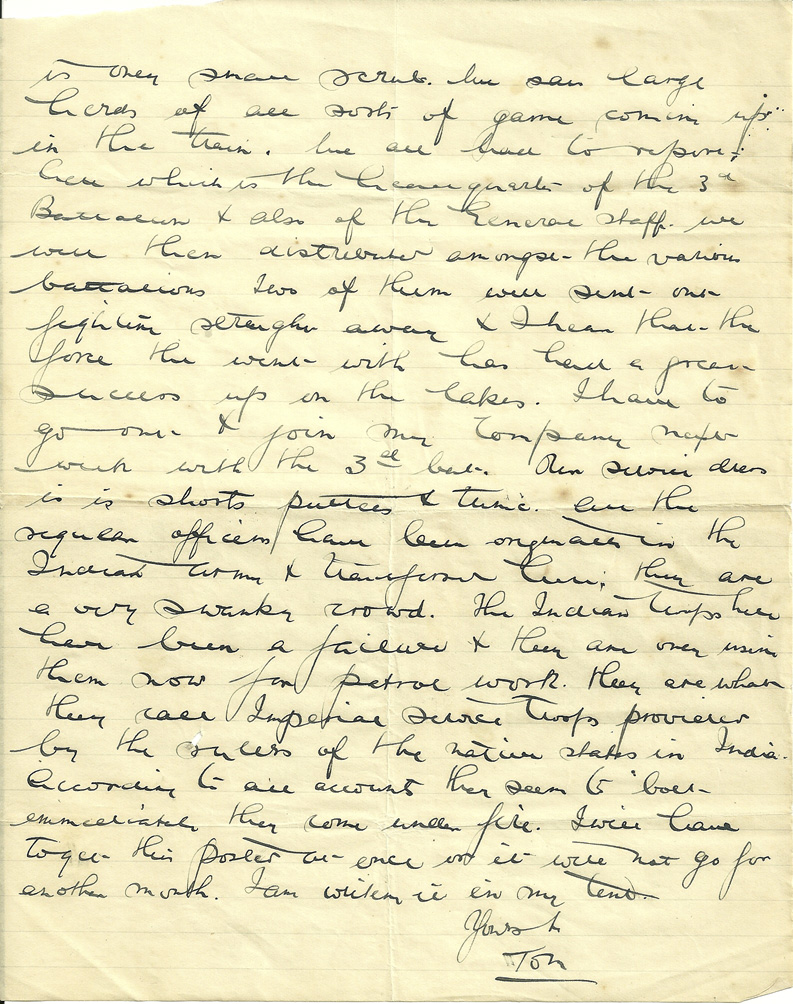 is only small scrub. We saw large
herds of all sorts of game coming up
in the train. We all had to report
here which is the headquarters of the 3rd
Battalion & also of the General staff. we
were then distributed amongst the various
battalions Two of them were sent out
fighting straight away & I hear that the
force the went with has had a great
success up on the lakes. I have to
go out & join my Company next
week with the 3rd bat. Our service dress
is is shorts puttees & tunic. All the
regular officers have been originally in the
Indian Army & transferred here; they are
a very swanky crowd. The Indian troops here
have been a failure & they are only using
them now for patrol work. they are what
they call Imperial Service Troops provided
by the rulers of the native states in India.
According to all accounts they seem to 'bolt
immediately they come under fire. I will have
to get this posted at once or it will not go for
another month. I am writing it in my tent.
Yours
Tom